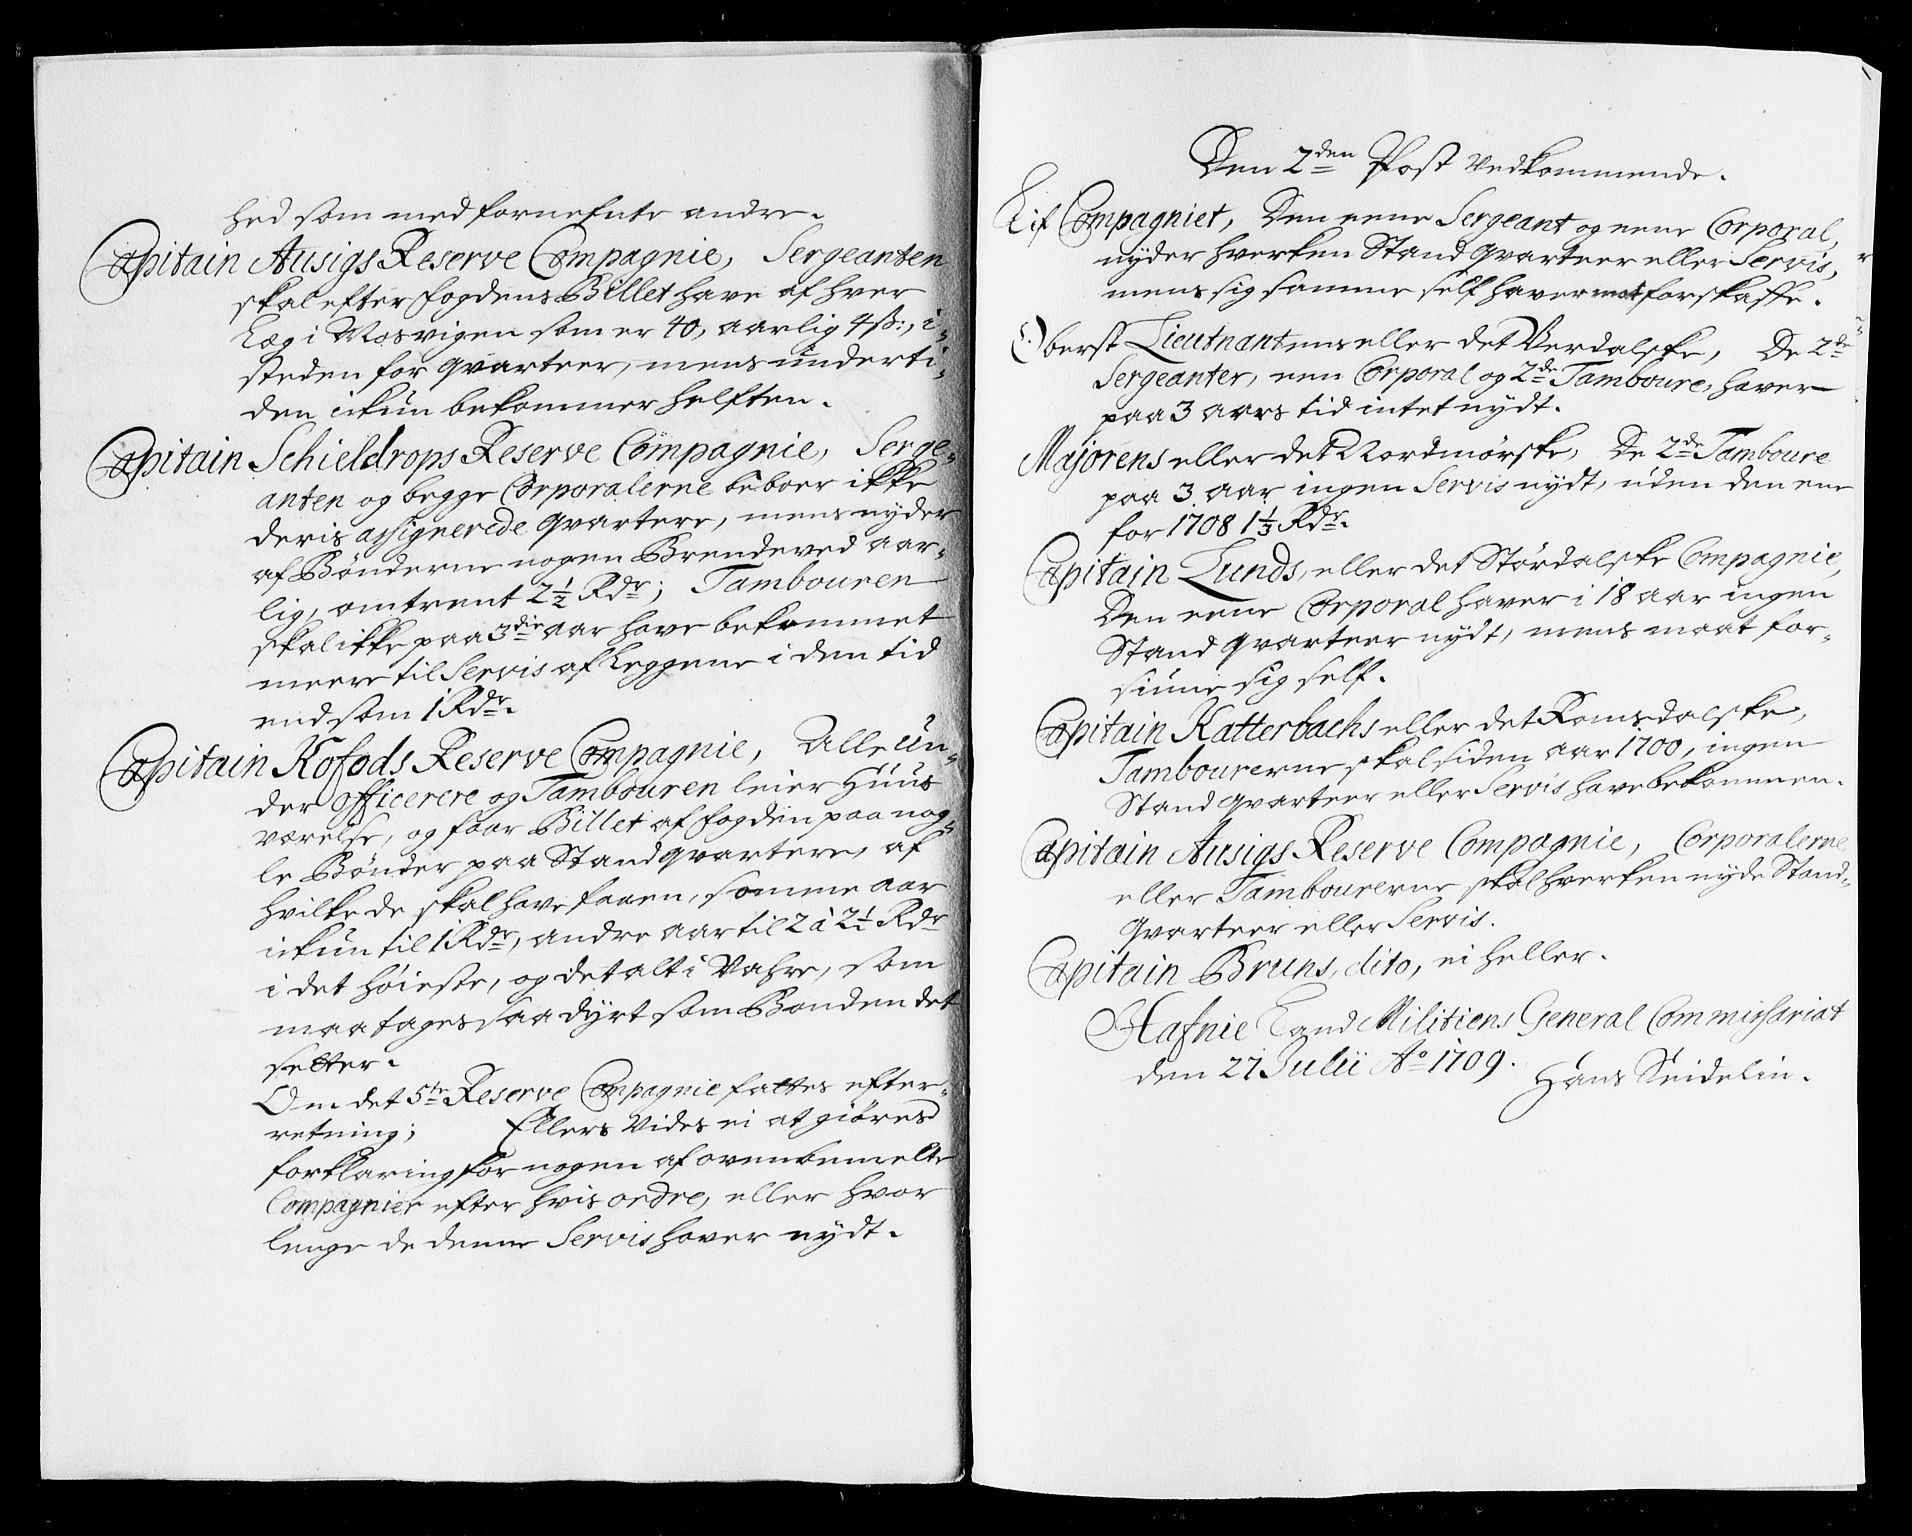 hed som med fornefnte andre.
Capitain Ausigs Reserve Compagnie, Sergeanten
skal efter fogdens Billet have af hver
Læg i Mosvigen som er 40, aarlig 4 ß:, i-
steden for qvarteer, mens underti-
den ickun bekommer helften.
Capitain Schieldrops Reserve Compagnie, Serge-
anten og begge Corporalerne beboer ikke
deris assignerede qvartere, mens nyder
af Bønderne nogen Brendeved aar-
lig, omtrent 2½ Rdr; Tambouren
skal ikke paa 3die aar have bekommet
meere til Servis af Leggene i den tid
end som 1 Rdr.
Capitain Kofods Reserve Compagnie, Alle Un-
der officerere og Tambouren leier Huus
værelse, og faar Billet af fogden paa nog-
le Bønder paa Stand qvartere, af
hvilke de skal have faaen, somme aar
ickun til 1 Rdr, andre aar til 2 à 2½ Rdr
i det høieste, og det alt i Vahre, som
maa tages saa dyrt som Bonden det
setter.
Om det 5te Reserve Compagnie fattes efter-
retning; Ellers Vides ei at giøres
forklaring for nogen af ovenbemelte
Compagnier efter hvis ordre, eller hvor
lenge de denne Servis haver nydt.
Den 2den Post Vedkommende.
Lif Compagniet, Den eene Sergeant og eene Corporal,
nyder hverken Stand qvarteer eller Servis,
mens sig samme self haver mot forskaffe.
Oberst Lieutnantens eller det Verdalske, De 2de
Sergeanter, een Corporal og 2de Tamboure, haver
paa 3 aars tid intet nydt.
Majorens eller det Nordmørske, De 2de Tamboure
paa 3 aar ingen Servis nydt, uden den ene
for 1708 1⅓ Rdr.
Capitain Lunds, eller det Størdalske Compagnie,
Den eene Corporal haver i 18 aar ingen
Stand qvarteer nydt, mens maat for-
siune sig self.
Capitain Katterbachs eller det Romsdalske,
Tambourerne skal siden aar 1700, ingen
Stand qvarteer eller Servis have bekommen.
Capitain Ausigs Reserve Compagnie, Corporalerne
eller Tambourerne skal hverken nyde Stand-
qvarteer eller Servis.
Capitain Bruns, dito, ei heller.
Hafnie Land Militiens General Commissariat
den 27 Julii Ao 1709.
Hans Seidelin.